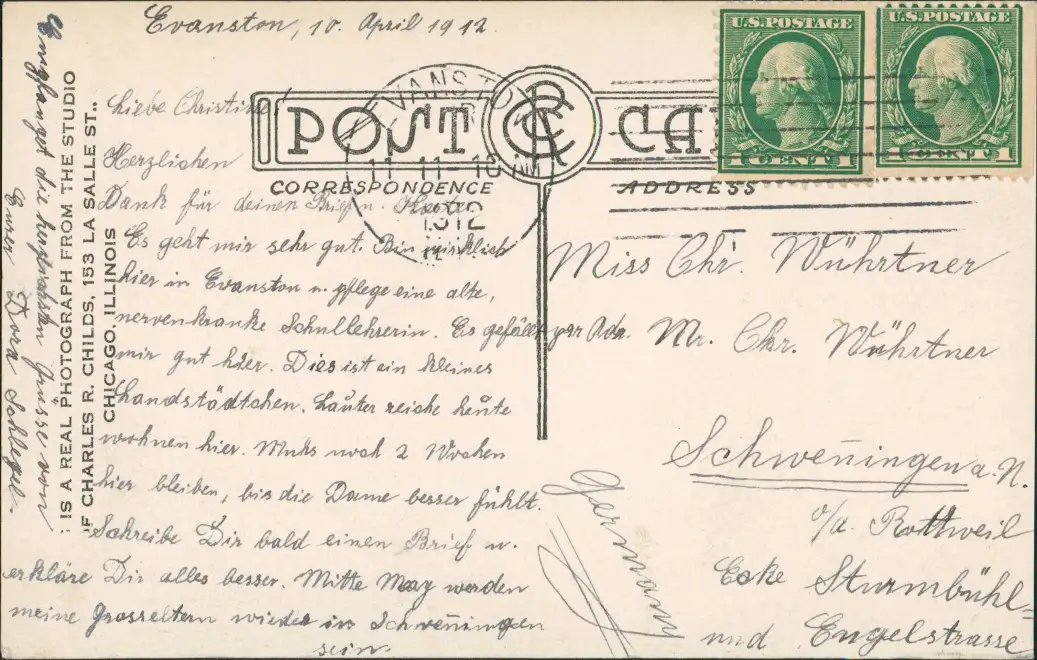 Evanston, 10. April 1912.
U.S. POSTAGE
U.S. POSTAGE
1 CENT 1
1 CENT 1
EVANSTON
11-10 AM
1912
POST CA
CORRESPONDENCE
ADDRESS
Liebe Christine!
Herzlichen
Dank für deinen Brief u.
Es geht mir sehr gut. Bin wirklich
hier in Evanston u. pflege eine alte,
nervenkranke Schullehrerin. Es gefällt
mir gut hier. Dies ist ein kleines
Landstädtchen. Lauter reiche Leute
wohnen hier. Muks noch 2 Wochen
hier bleiben, bis die Dame besser fühlt.
Schreibe Dir bald einen Brief u.
erkläre Dir alles besser. Mitte May werden
meine Grosseltern wieder in Schwen̄ingen
sein.
Empfanget die herzlichsten Grüsse von
Eurer Dora Schlegel.
IS A REAL PHOTOGRAPH FROM THE STUDIO
OF CHARLES R. CHILDS, 153 LA SALLE ST.,
CHICAGO, ILLINOIS
Miss Chr. Wührtner
Adr. Mr. Chr. Wührtner
Schwen̄ingen a. N.
o/a. Rottweil
Ecke Sturmbühl-
und Engelstrasse
Germany